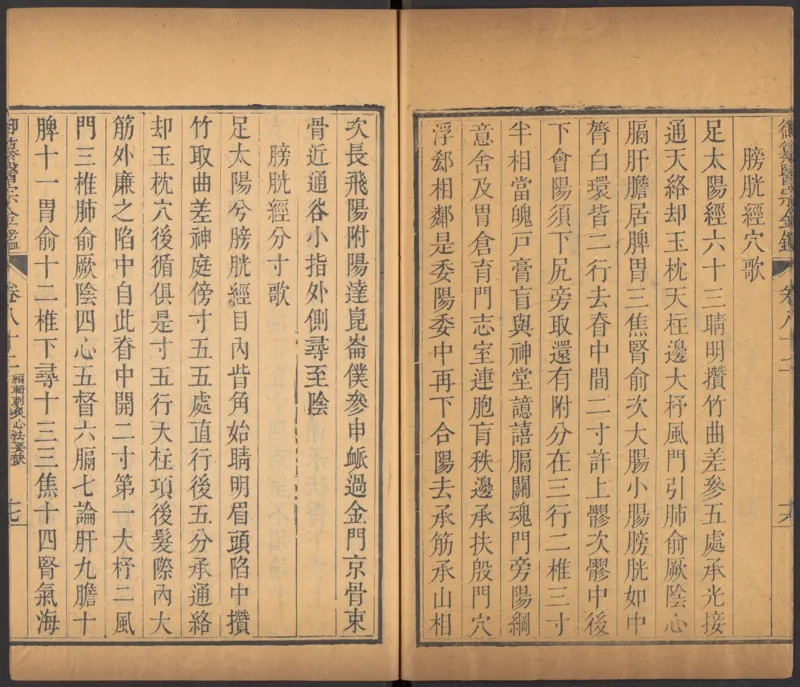 御纂醫宗金鑑 卷八十二 十六
膀胱經穴歌
足太陽經六十三睛明攢竹曲差參五處承光接
通天絡却玉枕天柱邊大杼風門引肺俞厥陰心
膈肝膽居脾胃三焦腎俞次大腸小腸膀胱如中
膂白環皆二行去脊中間二寸許上髎次髎中後
下會陽須下尻旁取還有附分在三行二椎三寸
半相當魄戶膏肓與神堂譩譆膈關魂門旁陽綱
意舍及胃倉肓門志室連胞肓秩邊承扶殷門穴
浮郄相鄰是委陽委中再下合陽去承筋承山相
次長飛陽附陽達崑崙僕參申脈過金門京骨束
骨近通谷小指外側尋至陰
膀胱經分寸歌
足太陽兮膀胱經目內眥角始睛明眉頭陷中攢
竹取曲差神庭傍寸五五處直行後五分承通絡
却玉枕穴後循俱是寸五行天柱項後髮際內大
筋外廉之陷中自此脊中開二寸第一大杼二風
門三椎肺俞厥陰四心五督六膈七論肝九膽十
脾十一胃俞十二椎下尋十三三焦十四腎氣海
御纂醫宗金鑑 卷八十二 編輯刺灸心法要訣 十七